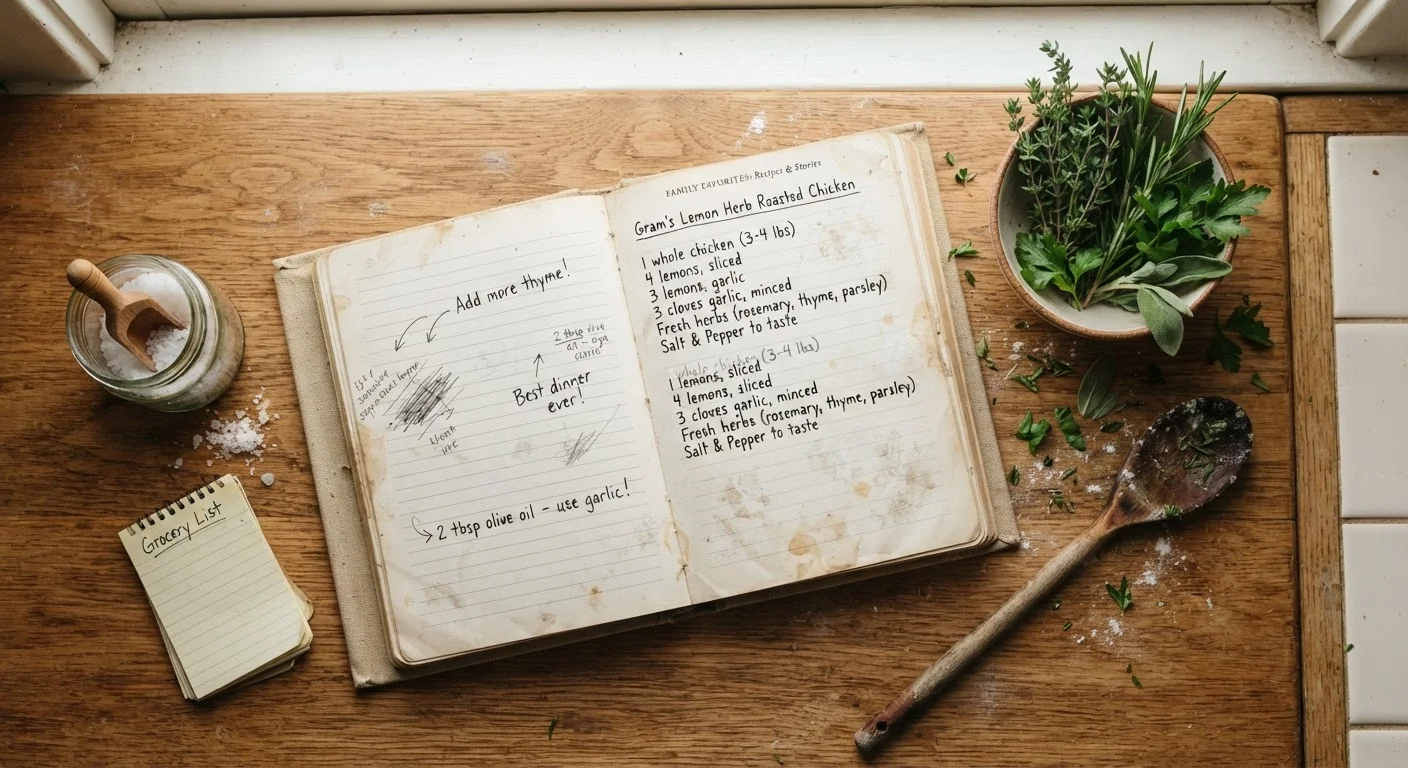 Add more thyme!
2 tbsp
Best dinner
ever!
2 tbsp olive oil – use garlic!
FAMILY FAVORITES: Recipes & Stories
Gram's Lemon Herb Roasted Chicken
1 whole chicken (3-4 lbs)
4 lemons, sliced
3 lemons, garlic
3 cloves garlic, minced
Fresh herbs (rosemary, thyme, parsley)
Salt & Pepper to taste
whole chicken (3-4 lbs)
1 lemons, sliced
4 lemons, sliced
3 cloves garlic, minced
Fresh herbs (rosemary, thyme, parsley)
Salt & Pepper to taste
Grocery List